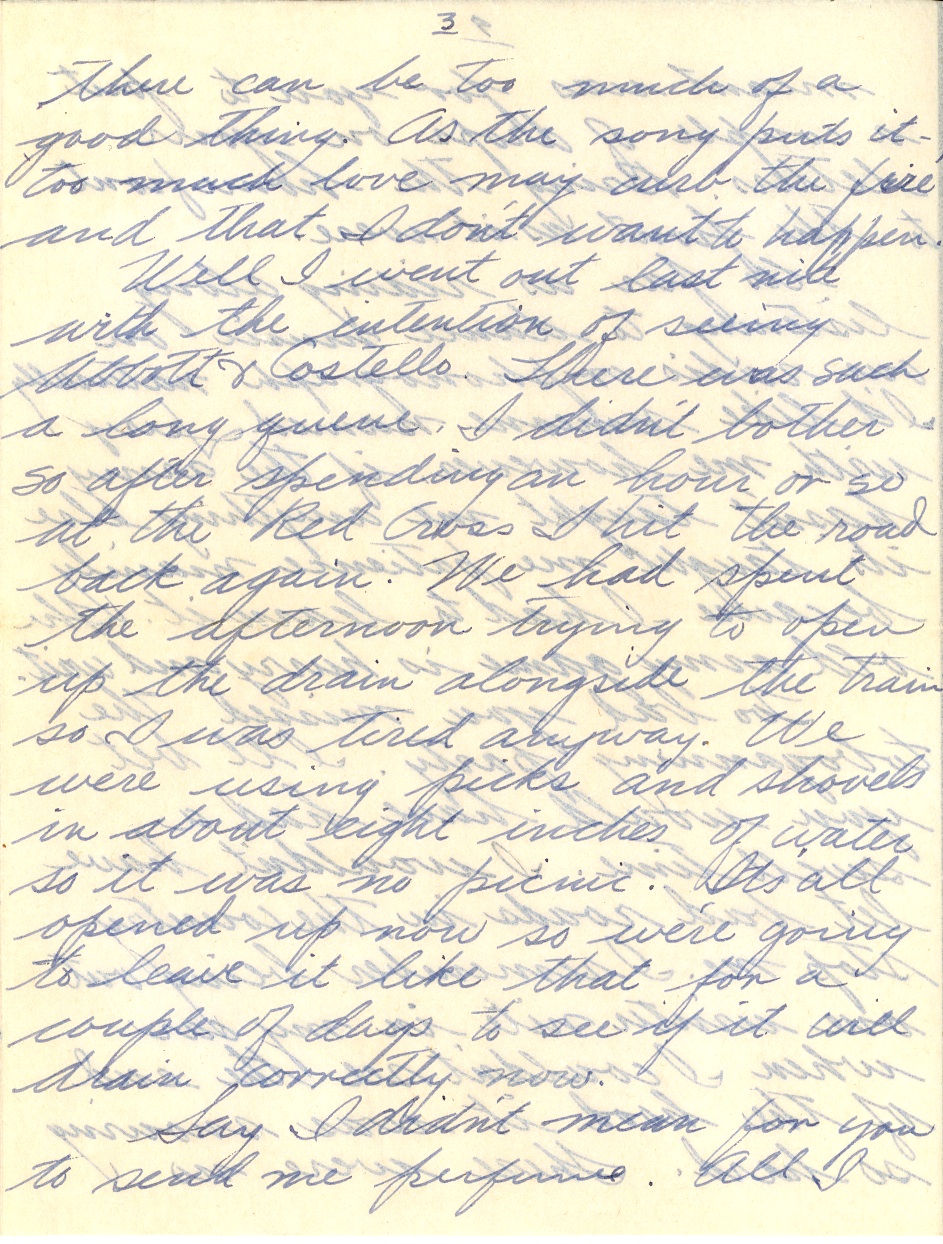 3
There can be too much of a
good thing. As the song puts it -
too much love may curb the fire
and that I don't want to happen.
Well I went out last nite
with the intention of seeing
Abbott & Costello. There was such
a long queue. I didn't bother
so after spending an hour or so
at the Red Cross I hit the road
back again. We had spent
the afternoon trying to open
up the drain alongside the train
so I was tired anyway. We
were using picks and shovels
in about eight inches of water
so it was no picnic. Its all
opened up now so we're going
to leave it like that for a
couple of days to see if it will
drain correctly now.
Say I didn't mean for you
to send me perfume. All I